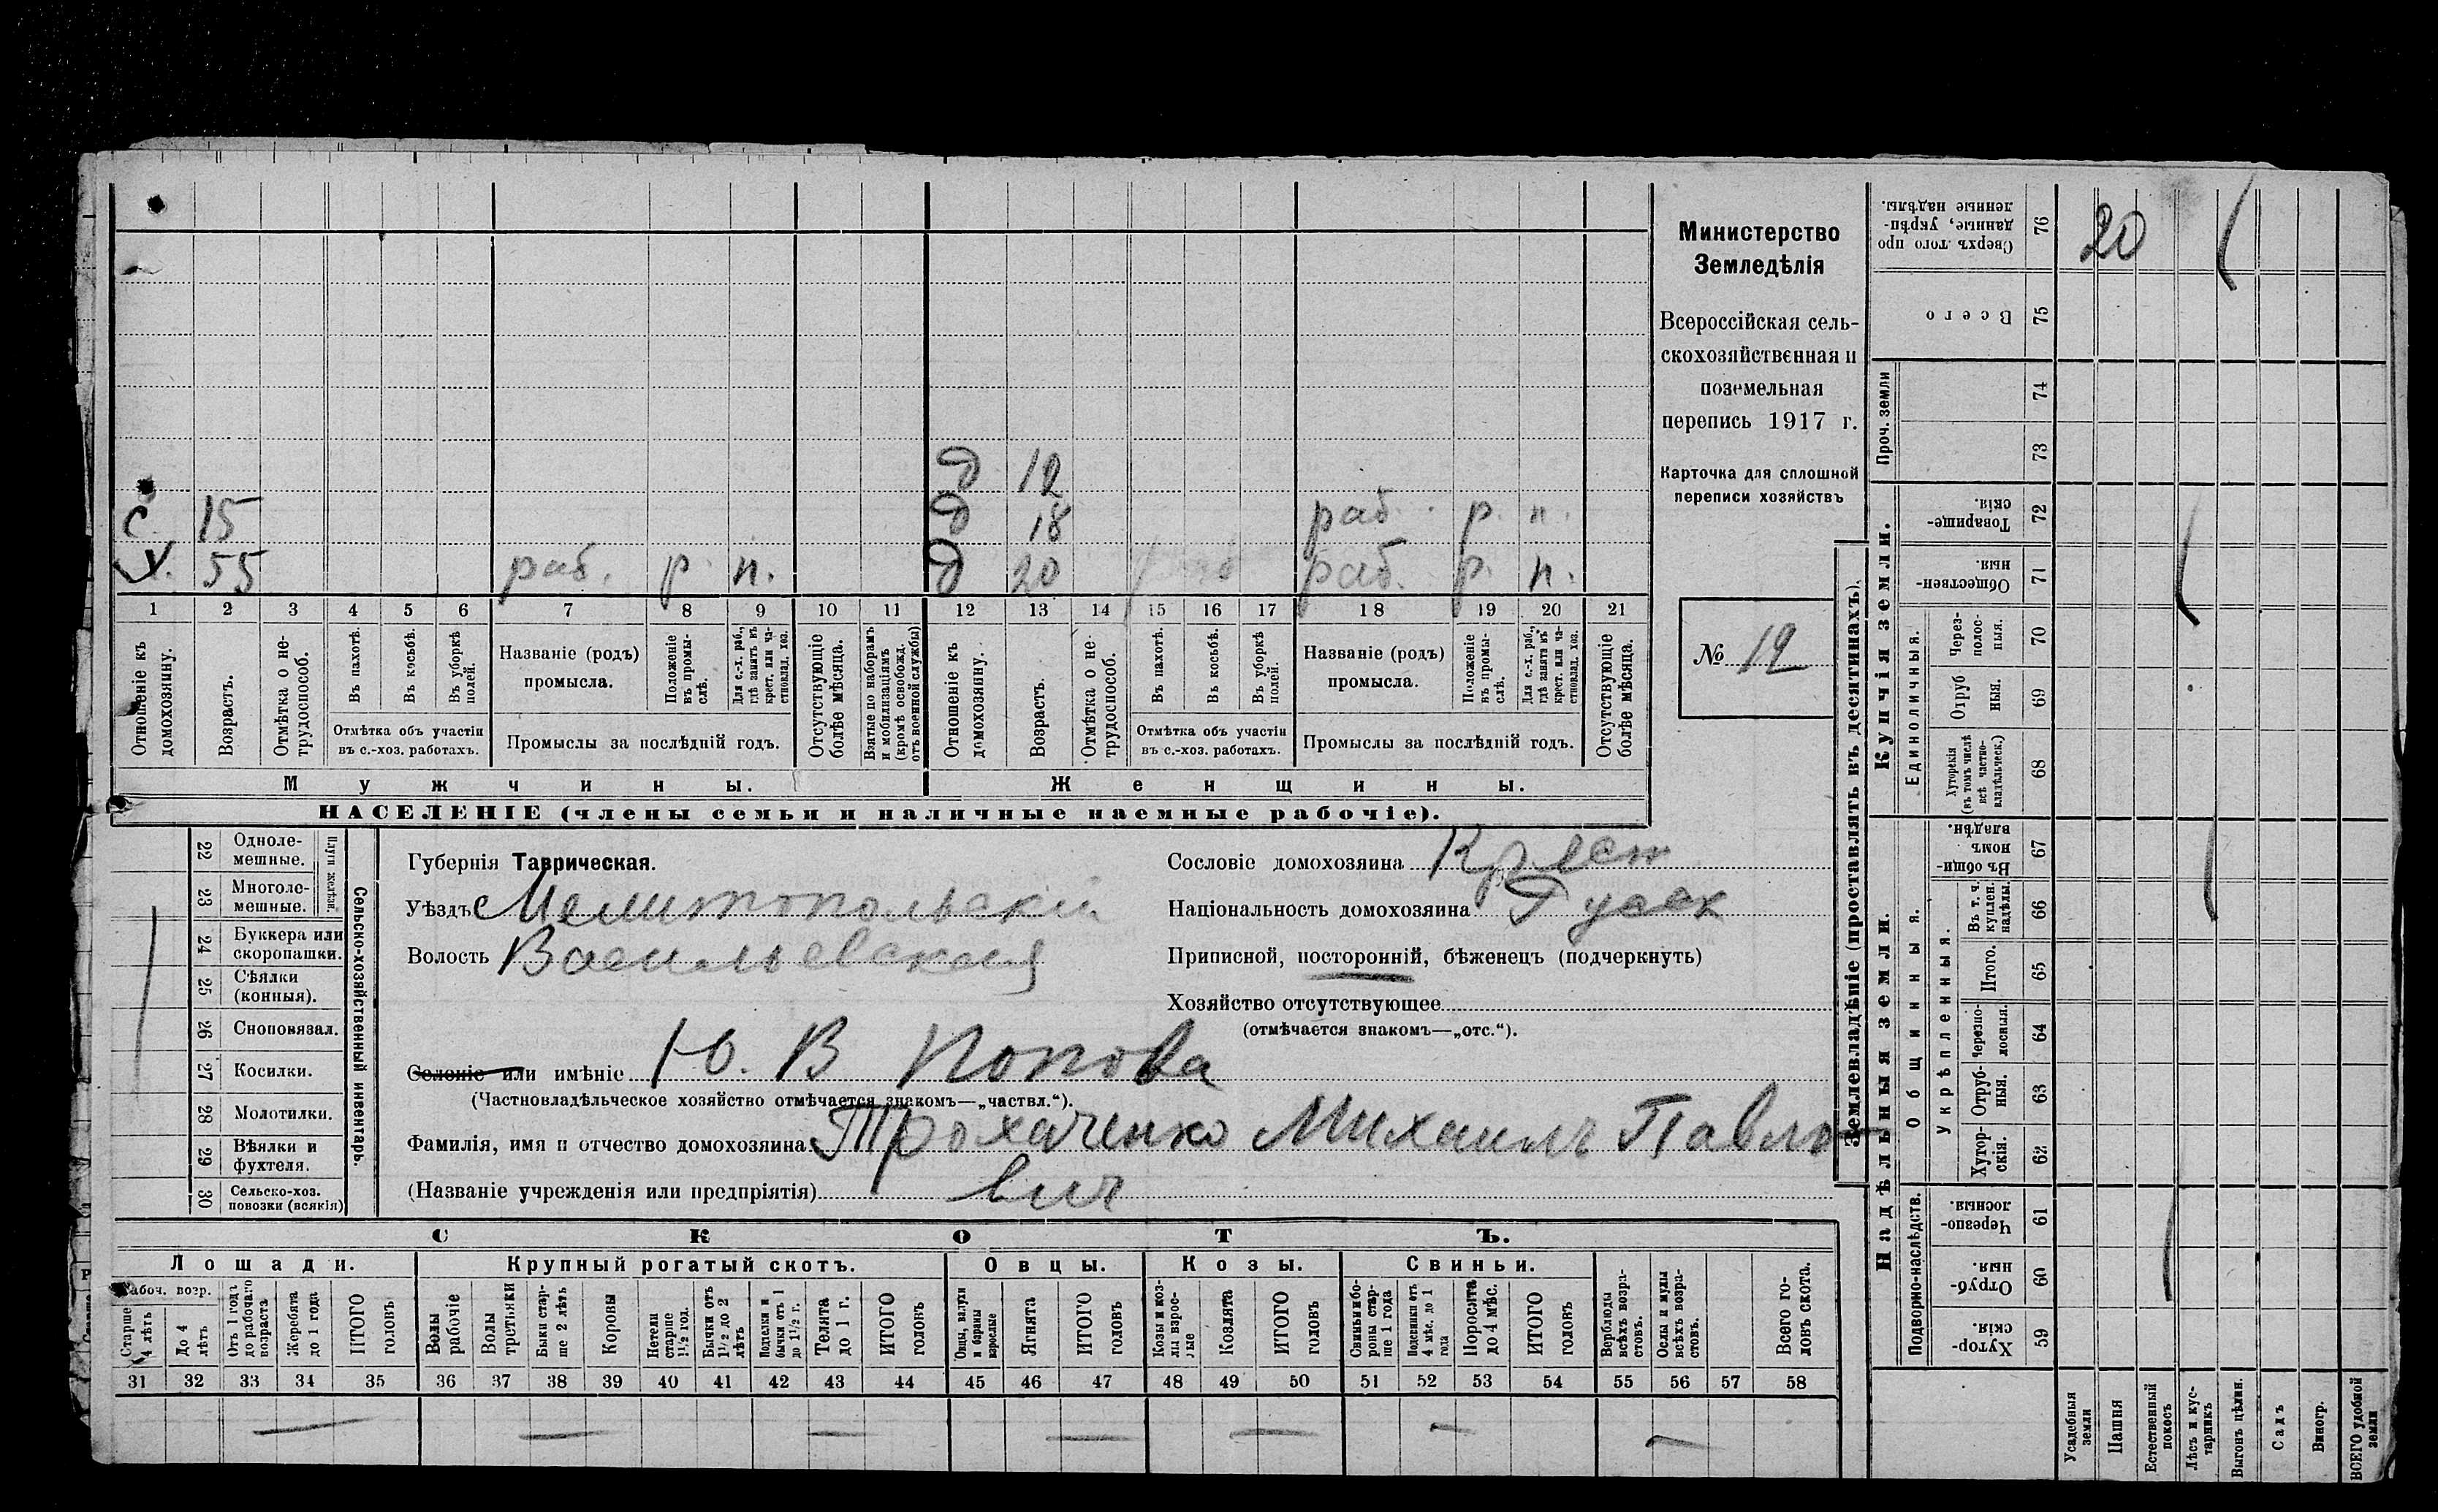 д 12
с 15 д 18 раб. р. п.
х. 55 раб. р. п. д 20 раб. р. п.
1 2 3 4 5 6 7 8 9 10 11 12 13 14 15 16 17 18 19 20 21
Отношеніе къ домохозяину.
Возрастъ.
Отмѣтка о нетрудоспособ.
Въ пахотѣ.
Въ косьбѣ.
Въ уборкѣ полей.
Отмѣтка объ участіи
въ с.-хоз. работахъ.
Названіе (родъ)
промысла.
Положеніе въ промыслѣ.
Для с.-х. раб., гдѣ занятъ въ крест. или частновлад. хоз.
Промыслы за послѣдній годъ.
Отсутствующіе болѣе мѣсяца.
Взятые по наборамъ и мобилизаціямъ (кромѣ освобожд. отъ военной службы)
Отношеніе къ домохозяину.
Возрастъ.
Отмѣтка о нетрудоспособ.
Въ пахотѣ.
Въ косьбѣ.
Въ уборкѣ полей.
Отмѣтка объ участіи
въ с.-хоз. работахъ.
Названіе (родъ)
промысла.
Положеніе въ промыслѣ.
Для с.-х. раб., гдѣ занята въ крест. или частновлад. хоз.
Промыслы за послѣдній годъ.
Отсутствующіе болѣе мѣсяца.
Мужчины. Женщины.
НАСЕЛЕНІЕ (члены семьи и наличные наемные рабочіе).
Министерство
Земледѣлія
Всероссійская сель-
скохозяйственная и
поземельная
перепись 1917 г.
Карточка для сплошной
переписи хозяйствъ
№ 12
Сельско-хозяйственный инвентарь.
Плуги желѣзн.
22 Одноле-
мешные.
23 Многоле-
мешные.
24 Буккера или
скоропашки.
25 Сѣялки
(конныя).
26 Сноповязал.
27 Косилки.
28 Молотилки.
29 Вѣялки и
фухтеля.
30 Сельско-хоз.
повозки (всякія)
Губернія Таврическая.
Уѣздъ Мелитопольскій
Волость Васильевская
Сословіе домохозяина Крест
Національность домохозяина Русск
Приписной, посторонній, бѣженецъ (подчеркнуть)
Хозяйство отсутствующее
(отмѣчается знакомъ—„отс.“).
Селеніе или имѣніе Ю. В Попова
(Частновладѣльческое хозяйство отмѣчается знакомъ—„частвл.“).
Фамилія, имя и отчество домохозяина Трохаченко Михаилъ Павло-
(Названіе учрежденія или предпріятія) вич
СКОТЪ.
Лошади. Крупный рогатый скотъ. Овцы. Козы. Свиньи.
Рабоч. возр.
Старше 4 лѣтъ
До 4 лѣтъ
Отъ 1 годъ до рабочаго возраста
Жеребята до 1 года
ИТОГО головъ
Волы рабочіе
Волы третьяки
Быки старше 2 лѣтъ
Коровы
Нетели старше 1½ год.
Бычки отъ 1½ до 2 лѣтъ
Подтелки и бычки отъ 1 до 1½ г.
Телята до 1 г.
ИТОГО головъ
Овцы, валухи и бараны взрослые
Ягнята
ИТОГО головъ
Козы и козлы взрослые
Козлята
ИТОГО головъ
Свиньи и бороны старше 1 года
Подсвинки отъ 4 мѣс. до 1 года
Поросята до 4 мѣс.
ИТОГО головъ
Верблюды всѣхъ возрастовъ.
Ослы и мулы всѣхъ возрастовъ.
Всего головъ скота.
31 32 33 34 35 36 37 38 39 40 41 42 43 44 45 46 47 48 49 50 51 52 53 54 55 56 57 58
Землевладѣніе (проставлять въ десятинахъ).
Надѣльныя земли. Купчія земли.
Проч. земли
Подворно-наслѣдств.
Общинныя.
Укрѣпленныя.
Единоличныя.
76 Сверхъ того проданные, укрѣпленные надѣлы. 20
75 Всего
74
73
72 Товарищескія
71 Общественныя.
70 Черезполосныя.
69 Отрубныя.
68 Хуторскія (въ томъ числѣ всѣ частновладѣльческ.)
67 Въ общинномъ владѣн.
66 Въ т. ч. куплен. надѣлы.
65 Итого.
64 Черезполосныя.
63 Отрубныя.
62 Хуторскія.
61 Черезполосныя.
60 Отрубныя.
59 Хуторскія.
Усадебныя земли
Пашня
Естественный покосъ
Лѣсъ и кустарникъ
Выгонъ цѣлин.
Садъ
Виногр.
ВСЕГО удобной земли